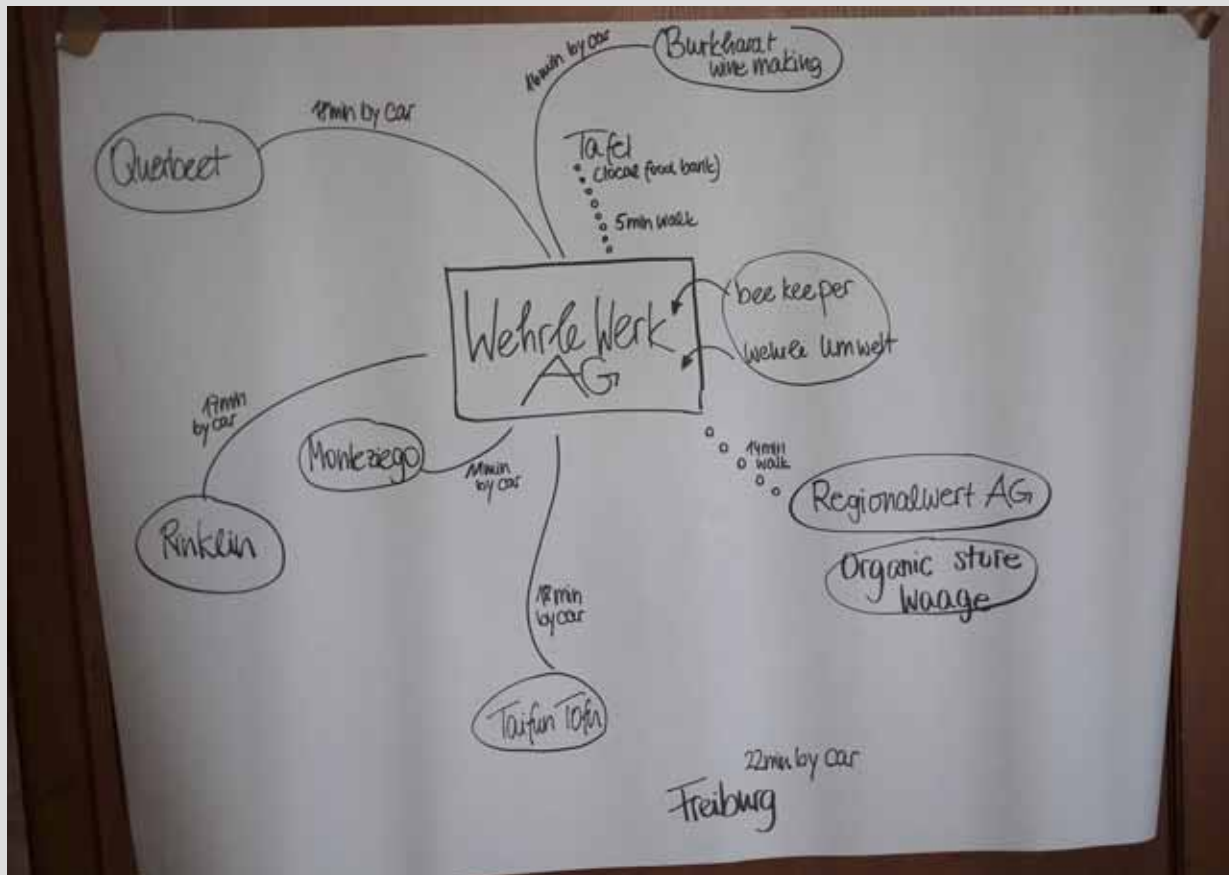 16min by car
Burkhardt
wine making
18min by car
Querbeet
Tafel
(local food bank)
5min walk
Wehrle Werk
AG
bee keeper
Wehrle Umwelt
by car
Monteziego
11min
by car
14min
walk
Regionalwert AG
Rinklin
Organic store
Waage
by car
Taifun Tofu
22min by car
Freiburg